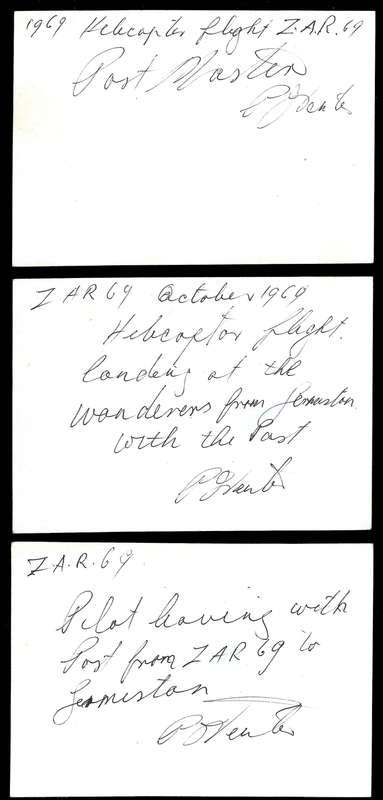 1969 Helicopter flight Z.A.R. 69
Post Master
P J Venter
Z A R 69 October 1969
Helicopter flight.
landing at the
wanderers from Germiston
with the Post
P J Venter
Z.A.R. 69
Pilot leaving with
Post from Z A R 69 to
Germiston
P J Venter